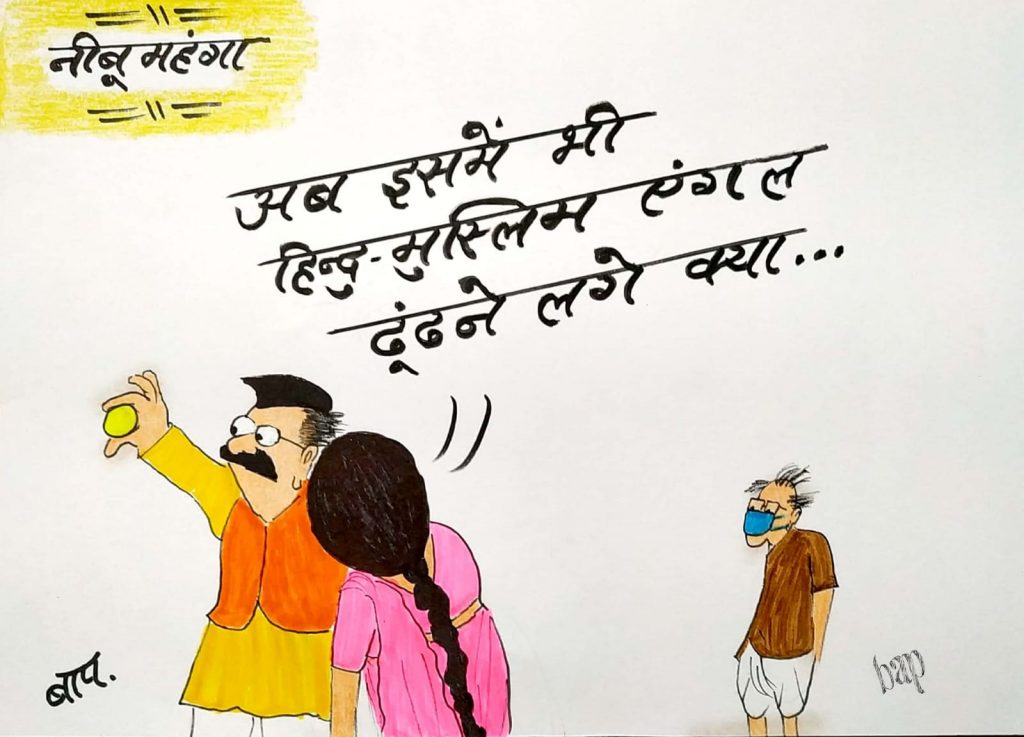 नीबू महंगा
अब इसमें भी
हिन्दु-मुस्लिम एंगल
ढूंढने लगे क्या...
बाप.
bap